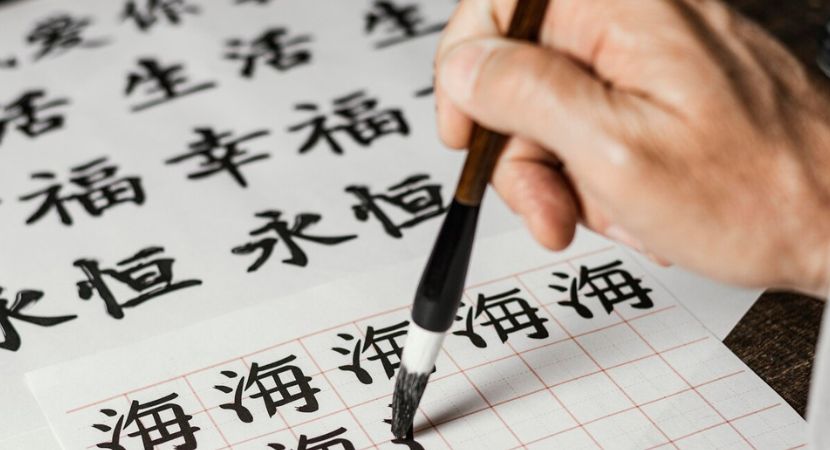 爱你
活生活生
福幸福
永恒永恒
海海海海海
海